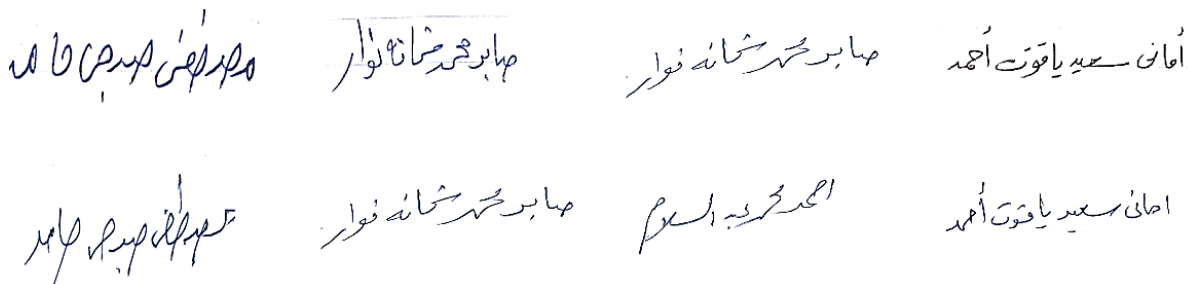 أمانى سعيد ياقوت أحمد
صابر محمد شحاته نوار
صابر محمد شحاته نوار
مصطفى صبحى حامد
امانى سعيد ياقوت أحمد
احمد محمد عبد السلام
صابر محمد شحاته نوار
مصطفى صبحى حامد